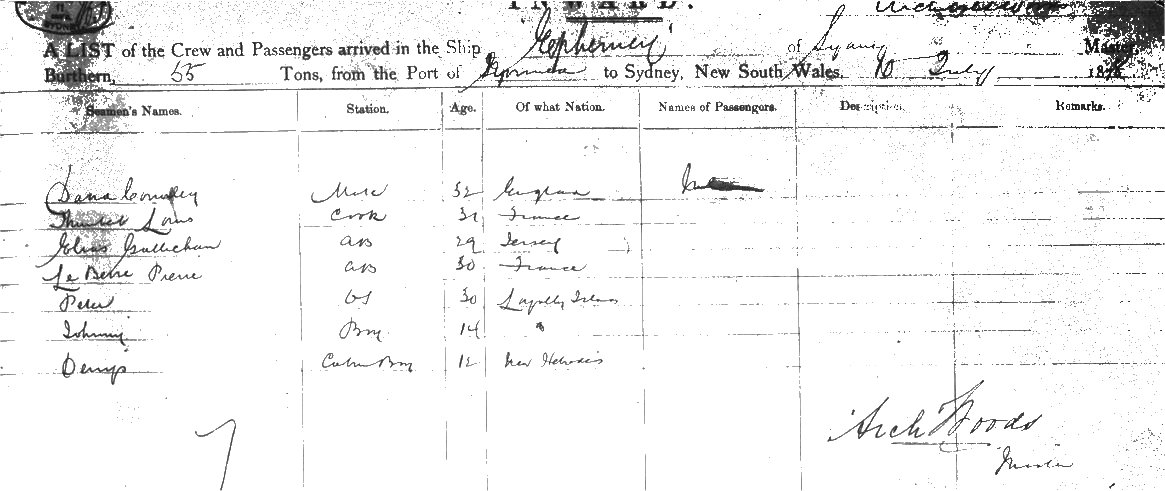 INWARD.
A LIST of the Crew and Passengers arrived in the Ship of Sydney Master,
Burthern, 55 Tons, from the Port of to Sydney, New South Wales, 10 July 187
Seamen's Names. Station. Age. Of what Nation. Names of Passengers. Description. Remarks.
Mate 32 England
Louis Cook 31 France
Elias Gallichan AB 29 Jersey
Le Bere Pierre AB 30 France
Peter OS 30 Loyalty Islands
Johnny Boy 14 "
Denys Cabin Boy 12 New Hebrides
7
Arch Woods
Master